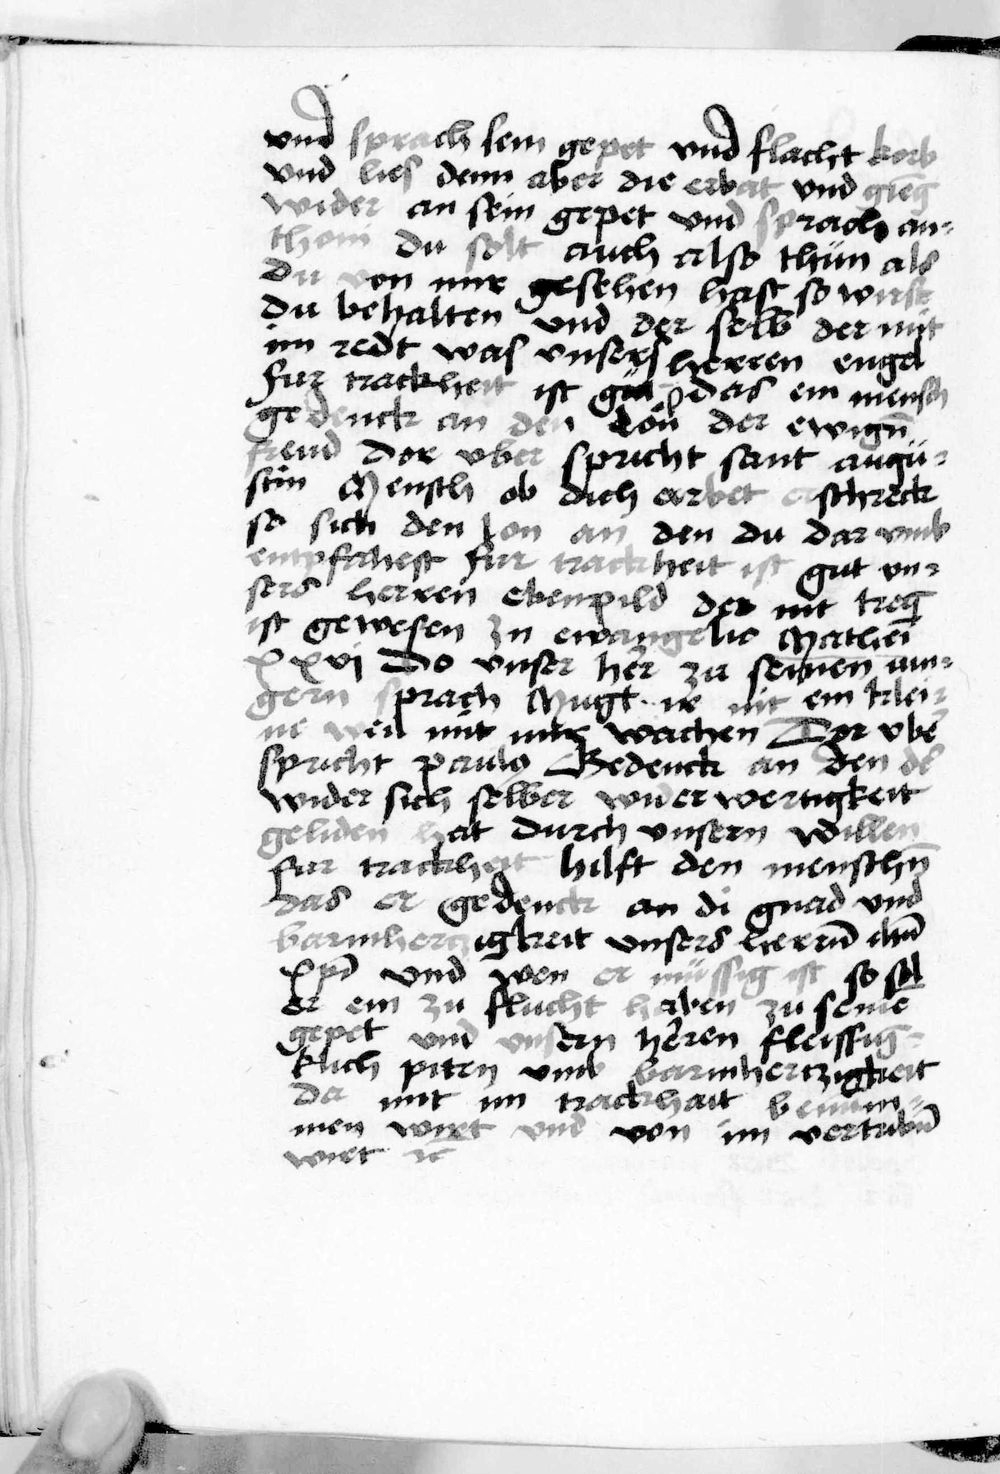 vnd sprach sein gepet vnd flacht korb
vnd lies denn aber die erbat vnd gieg̅
wider an sein gepet vnd sprach an-
thoni du solt auch also thün als
du von mir gesehen hast so wirst
du behalten vnd der selb der mit
im redt was vnsers herren engel
Fur trackheit ist güt das ein mensch
gedenck an den lön der ewign̅
freud Dor vber spricht sant augu-
stin Mensch ob dich arbet erschreck
so sich den lon an den du dar vmb
entpfahest Fur trackheit ist gut vn-
sers herren ebenpild der nit treg
ist gewesen Jn ewangelio Mathei
xxvi Do vnser her zu seinen iun-
gern sprach Mugt ir nit ein klei-
ne weil mit mir wachen Dor vbe̅
spricht paulus Gedenck an den de̅
wider sich selber widerwertigkeit
geliden hat durch vnsern willen
Fur trackheit hilft den menschn̅
das er gedenck an di gnad vnd
barmhertzigkeit vnsers herrn̅ ihu̅
xpi̅ vnd wen er müssig ist so sol
er ein zu flucht haben zu seine̅
gepet vnd vnsern heren fleissig-
klich pitn vmb barmhertzigkeit
da mit im trackhait benum-
men wirt vnd von im vertribn̅
wirt ꝛc̅